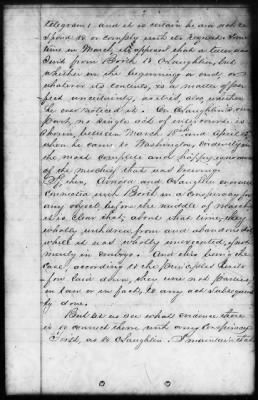 telegram, and it is certain he did not re
spond to or comply with its request. Some
time in March, it appears that a telegram was
sent from Booth to O'Laughlin, but
whether in the beginning or end, or
whatever its contents, is a matter of per
fect uncertainty, as is also whether
he ever noticed it. On O'Laughlin's
part, no single act of intercourse is
shown between March 18th and April 13th
when he came to Washington, evidently in
the most complete and happy ignorance
of the mischief that was brewing.
If, then, Arnold and O'Laughlin
connected with Booth in a conspiracy for
any object before the middle of March
it is clear that, about that time, they
wholly withdrew from and abandoned it
while it was wholly unexecuted, and
merely in embryo. And this being the
case, according to the principles here
for laid down, they were not parties,
in law or in fact, to any act subsequent
ly done.
But let us see what evidence there
is to connect them with any conspiracy.
First, as to O'Laughlin. I maintain that